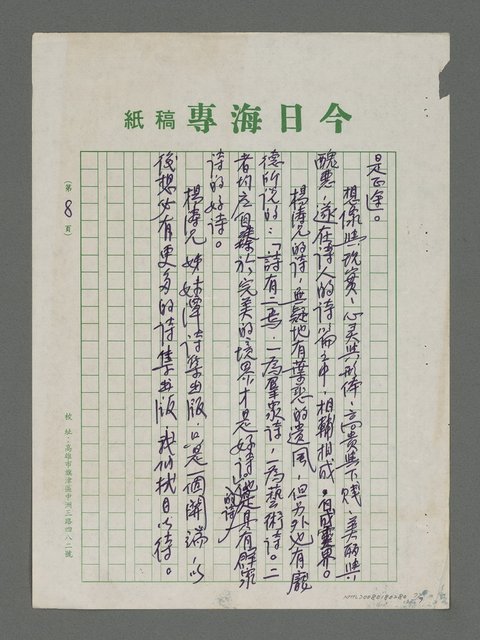 今日海專稿紙
是正途。
想像與現實，心灵與形体，高貴與下賤，美丽與
醜惡，遂在詩人的詩篇中，相輔相成，自成靈界。
楊濤兄的詩，無疑地有葉惠的遺風，但另外也有龐
德所說的：「詩有二焉，一為羣眾詩，一為藝術詩。二
者均应自釋於完美的境界，才是好詩」的詩也是具有群眾
詩的好詩。
楊濤兄姊妹潭詩集出版，只是一個開端，以
後想必有更多的詩集出版，我们拭目以待。
（第8頁）
校址：高雄市旗津區中洲三路四八二號